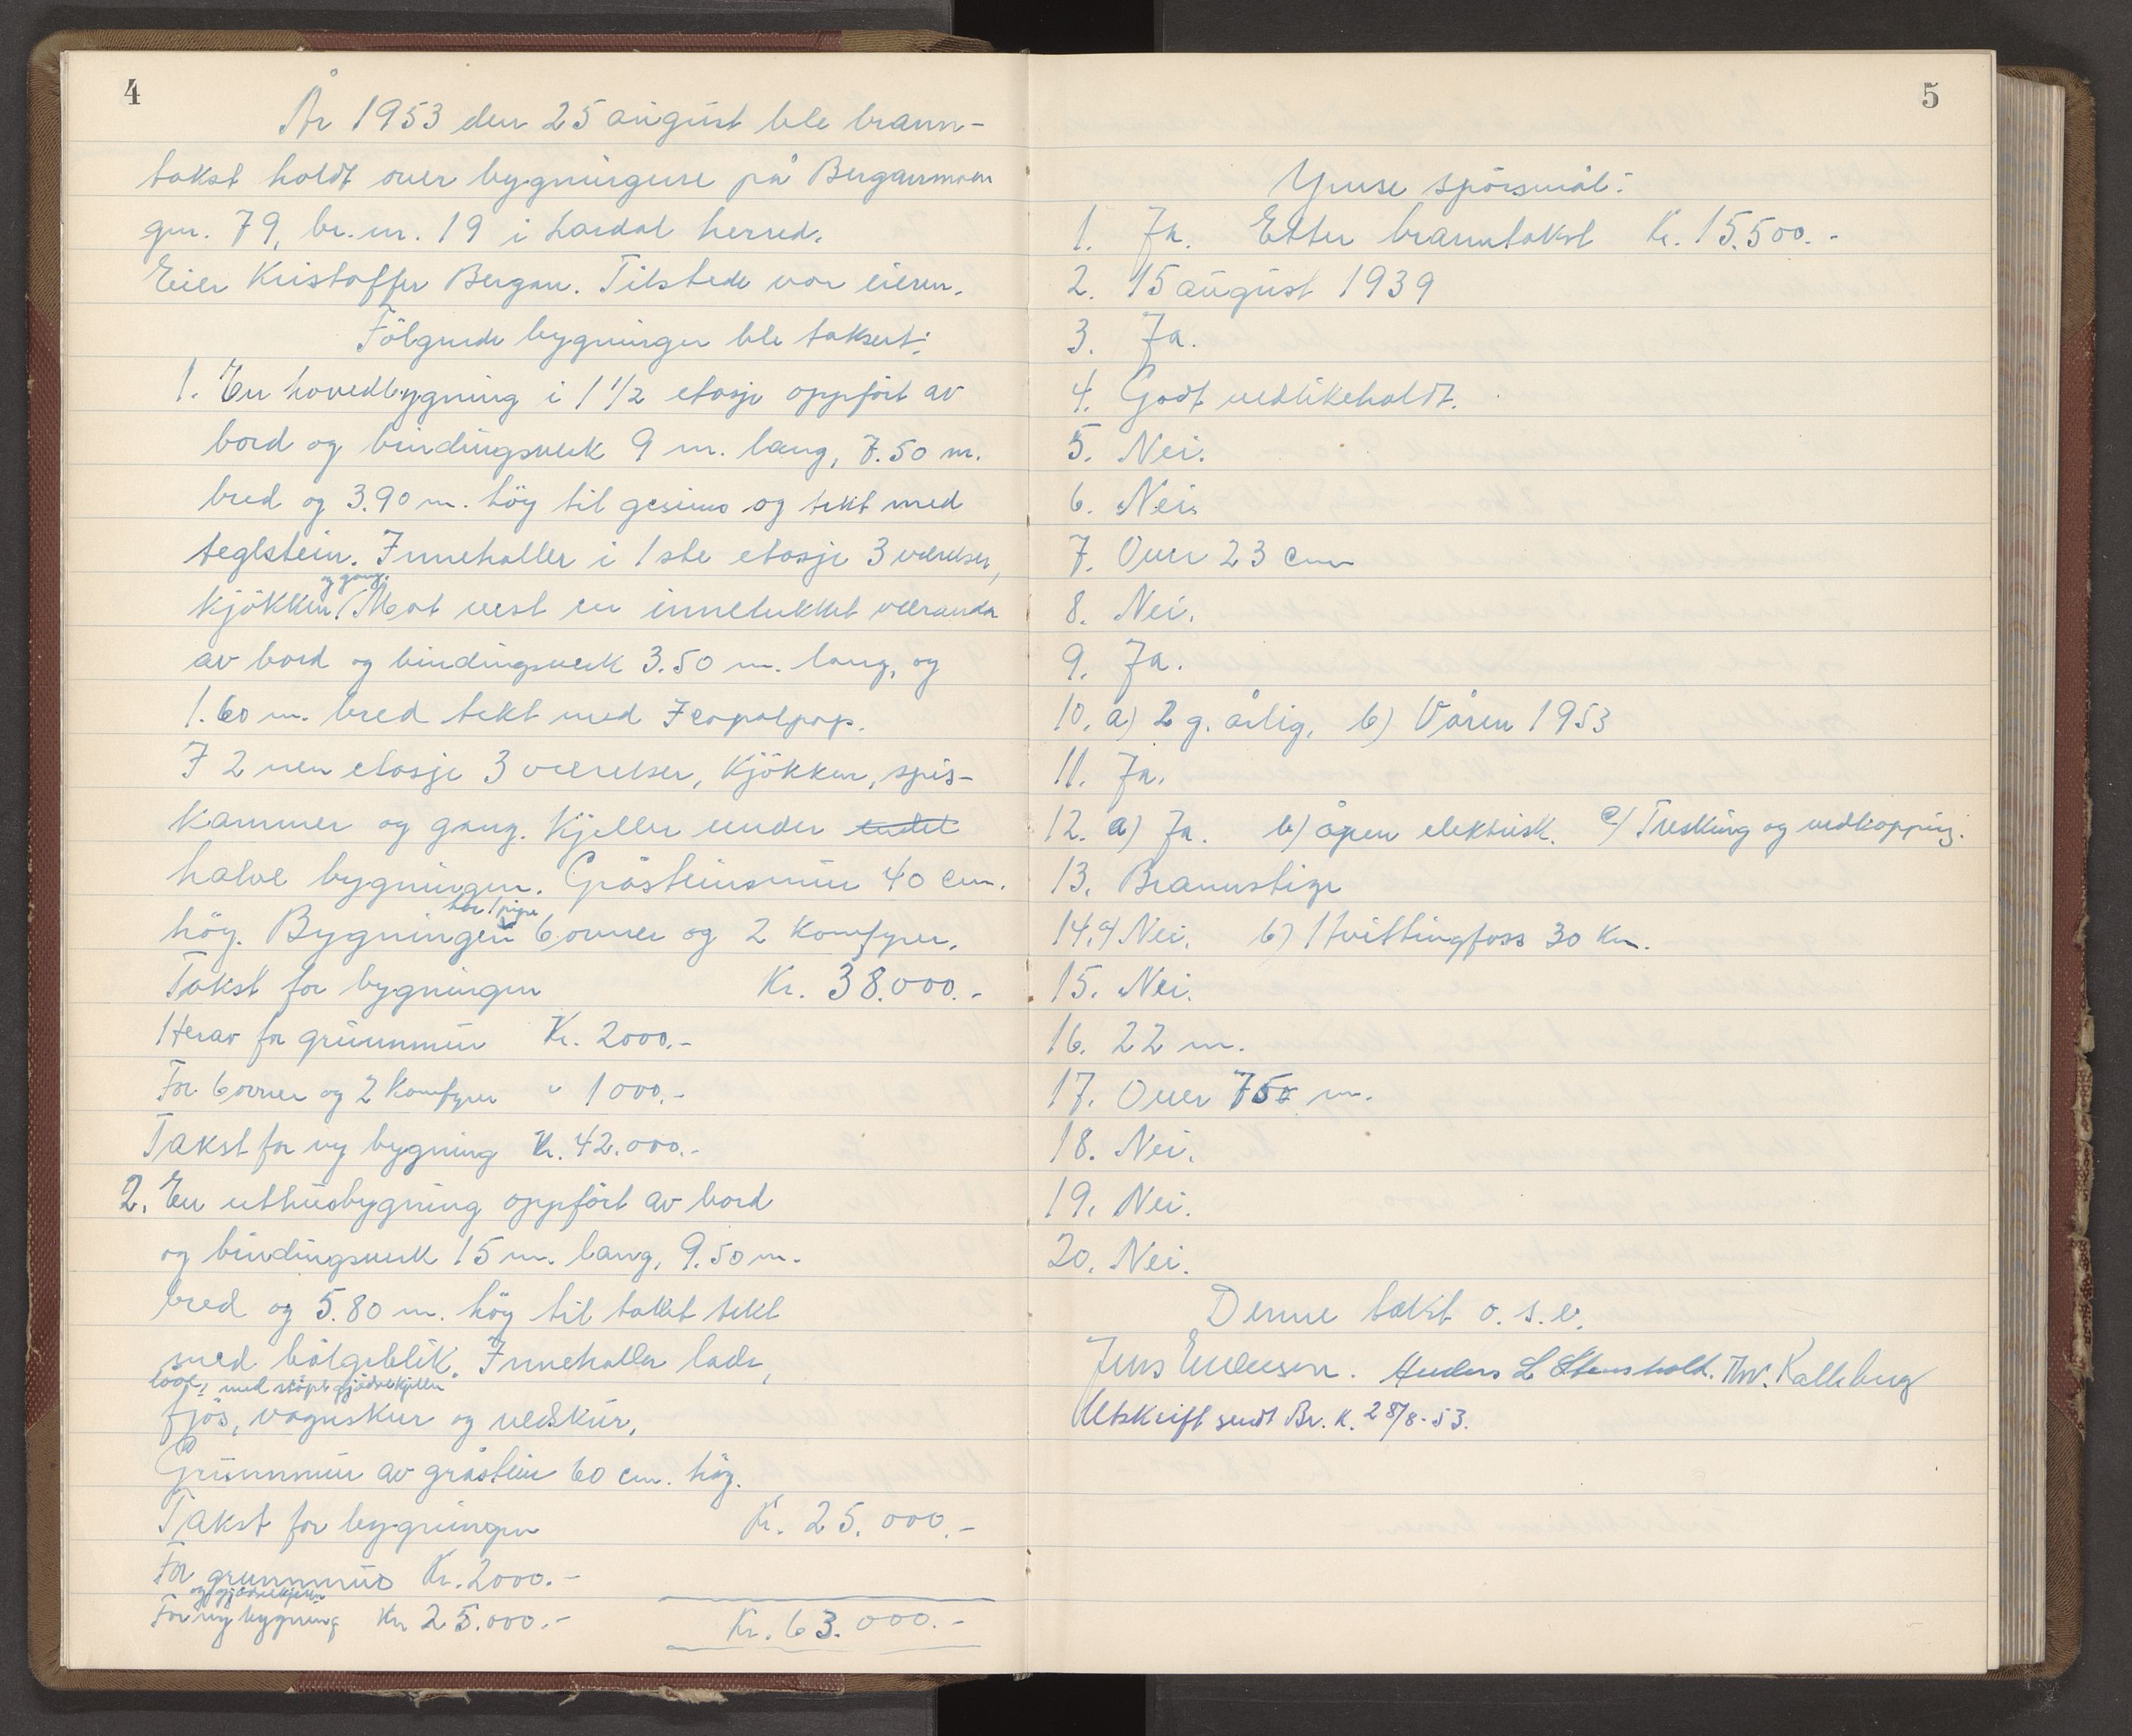 4
År 1953 den 25 august ble brann-
takst holdt over bygningene på Berganmoen
gnr. 79, br.nr. 19 i Lardal herred.
Eier Kristoffer Bergan. Tilstede var eieren.
Följende bygninger ble taksert:
1. En hovedbygning i 1 1/2 etasje oppfört av
bord og bindingsverk 9 m. lang, 7.50 m.
bred og 3.90 m. höy til gesims og tekt med
teglstein. Inneholler i 1ste etasje 3 værelser,
og gang.
kjökken. Mot vest en innelukket veranda
av bord og bindingsverk 3.50 m. lang, og
1.60 m. bred tekt med Icopalpap.
I 2nen etasje 3 værelser, kjökken, spis-
kammer og gang. Kjeller under
halve bygningen. Gråsteinsmur 40 cm.
har 1 pipe
höy. Bygningen 6 ovner og 2 komfyrer.
Takst for bygningen Kr. 38.000.-
Herav for grunnmur Kr. 2000.-
For 6 ovner og 2 komfyrer " 1000.-
Takst for ny bygning Kr. 42.000.-
2. En uthusbygning oppfört av bord
og bindingsverk 15 m. lang, 9.50 m.
bred og 5.80 m. höy til taket tekt
med bölgeblik. Inneholler lade,
låve, med stöpt gjödselkjeller
fjös, vognskur og vedskur.
Grunnmur av gråstein 60 cm. höy.
Takst for bygningen Kr. 25.000.-
For grunnmur Kr. 2000.-
og gjödselkjeller
For ny bygning Kr 25.000.-
Kr. 63.000.-
5
Ymse spörsmål:
1. Ja. Etter branntakst Kr. 15.500.-
2. 15 august 1939
3. Ja.
4. Godt vedlikeholdt.
5. Nei.
6. Nei.
7. Over 23 cm
8. Nei.
9. Ja.
10. a) 2 g. årlig, b) Våren 1953
11. Ja.
12. a) Ja. b) åpen elektrisk. c) Tresking og vedkapping.
13. Brannstige
14. a Nei. b) Hvittingfoss 30 Km.
15. Nei.
16. 22 m.
17. Over 750 m.
18. Nei.
19. Nei.
20. Nei.
Denne takst o. s. v.
Jens Evensen. Anders L Stensholt. Thv. Kalleberg
Utskrift sendt Br. K. 28/8-53.